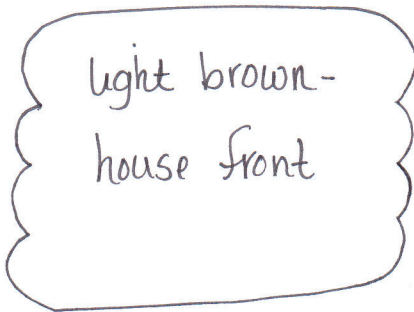 light brown-
house front